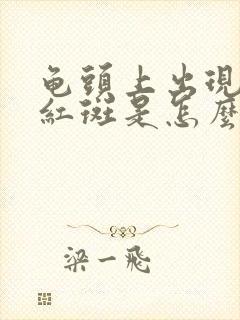 龟頭上出現
紅斑是怎麼
梁一飛